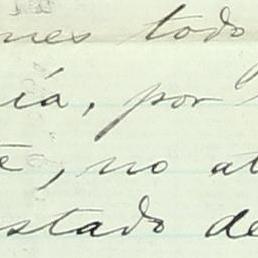 nes todo
ía, por
e, no at
stado de